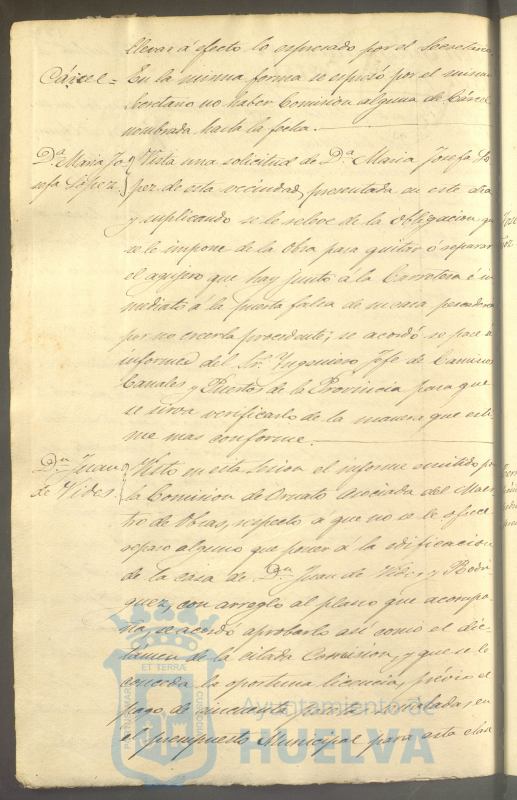 llevar á efecto lo espresado por el Secretario.
Cárcel = En la misma forma se espusó por el mismo
Secretario no haber Comision alguna de Cárcel
nombrada hasta la fecha.
Dª Maria Jo Vista una solicitud de Dª Maria Josefa Lo
sefa Lopez. pez de esta vecindad, presentada en este dia
y suplicando se le releve de la obligacion que
se le impone de la obra para quitar ó reparar
el agujero que hay junto á la Carretera é in
mediato á la puerta falsa de su casa
por no creerla procedente; se acordó se pase á
informe del Sr. Ingeniero Jefe de Caminos
Canales y Puertos de la Provincia para que
se sirva verificarlo de la manera que esti-
me mas conforme.
Dn Juan Visto en esta Sesion el informe emitido por
de Vides. la Comision de Ornato asociada del Maes
tro de Obras, respecto á que no se le ofrece
reparo alguno que poner á la edificacion
de la casa de Dn Juan de Vides y Rodri
guez, con arreglo al plano que acompa
ña, se acordó aprobarlo asi como el dic-
támen de la citada Comision, y que se le
conceda la oportuna licencia, prévio el
pago de cincuenta pesetas señaladas en
el presupuesto Municipal para esta clase
PORTUS MARIS
ET TERRÆ
CUSTODIA
Ayuntamiento de
HUELVA